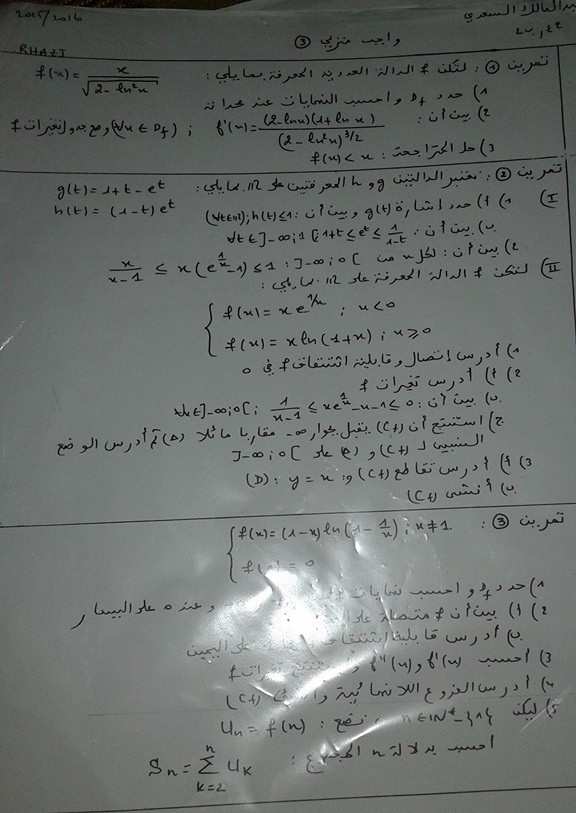 2015/2016
عبدالمالك السعدي
واجب منزلي ③
RHAZI
تمرين ①: لتكن f الدالة العددية المعرفة بما يلي: f(x) = x / √(2 - ln²x)
1) حدد Df و احسب النهايات عند محداته
2) بين أن: f'(x) = (2-lnx)(1+lnx) / (2-ln²x)^(3/2) ; (∀x ∈ Df) وضع جدول تغيرات f
3) حل المتراجحة: f(x) < x
تمرين ②: نعتبر الدالتين g و h المعرفتين على IR بما يلي: g(t) = 1+t-e^t
h(t) = (1-t)e^t
I) 1) أ) حدد إشارة g(t) و بين أن: (∀t∈IR); h(t) ≤ 1
ب) بين أن: ∀t ∈ ]-∞;1[ ; 1+t ≤ e^t ≤ 1/(1-t)
2) بين أن: لكل x من ]-∞;0[ : x/(x-1) ≤ x(e^(1/x)-1) ≤ 1
II) لتكن f الدالة المعرفة على IR بما يلي:
f(x) = x e^(1/x) ; x<0
f(x) = x ln(1+x) ; x ≥ 0
1) أدرس إتصال و قابلية اشتقاق f في 0
2) أ) أدرس تغيرات f
ب) بين أن: ∀x∈]-∞;0[ ; 1/(x-1) ≤ xe^(1/x)-x-1 ≤ 0
ج) استنتج أن (Cf) يقبل بجوار -∞ مقاربا مائلا (Δ) ثم أدرس الوضع
النسبي لـ (Cf) و (Δ) على ]-∞;0[
3) أ) أدرس تقاطع (Cf) و: (D): y = x
ب) أنشئ (Cf)
تمرين ③: f(x) = (1-x) ln(1 - 1/x) ; x ≠ 1
f( ) = 0
1) حدد Df و احسب نهايات و عند 0 على اليسار
2) أ) بين أن f متصلة على
ب) أدرس قابلية اشتقاق على اليمين
3) أحسب f'(x) و f"(x) تغيرات f
4) أدرس الفروع اللانهائية و (Cf)
5) ليكن n ∈ IN* - {1} ، نضع: Un = f(n)
احسب بدلالة n المجموع: Sn = Σ_{k=2}^{n} Uk